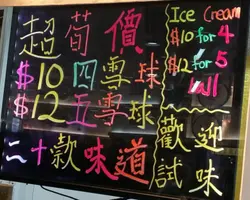 超荀價
$10四雪球
$12五雪球
二十款味道
Ice Cream
$10 for 4
$12 for 5
歡迎
試味